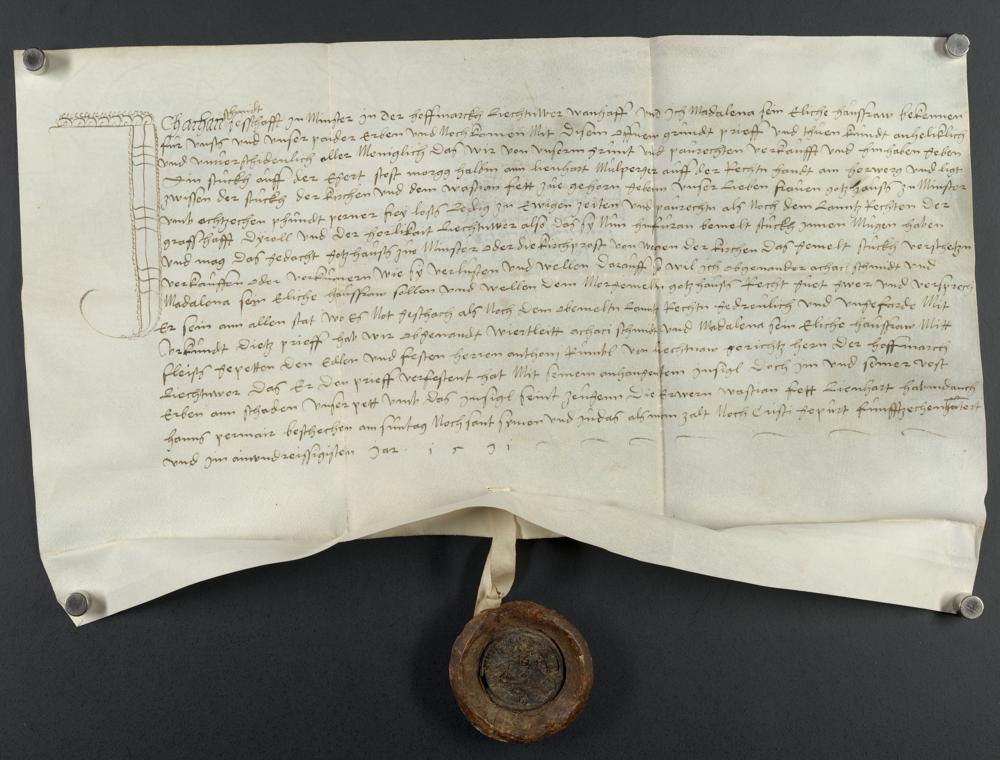 Ich achati schmidt sesshafft zu Minster in der hoffmarckh Liechtwer wanhafft und ich Madalena sein Eliche haussfraw bekennen
für unss und unser paider Erben und Nochkomen Mit disem offnem grundt prieff und thuen kundt anheliklich
und unverschidenlich aller Meniglich das wir von unserm frimit und paurechten verkaufft und hin haben geben
Ain stuckh auff der Ehert stost morgg halbm ann lienhart Mulperger auff der Rechtn handt am herweg und ligt
zwissen der stuckh der kirchen und dem wastian fett zue gehorn gebenn unser Lieben frauen gotzhauss zu Minster
umb achtzechen phundt perner frey loss Ledig zu Ewigen zeiten und paurecht als Noch dem Lanntz Rechten der
graffschafft Dyroll und der herlikait Liechtwer also das sy Nun hinfüran bemelt stuckh Innen Mügen haben
und mag das gedacht gotzhauss zu Minster oder die kirchprost von wegen der kirchen das gemelt stuckh versetzen
verkauffen oder verkumern wie sy verlusten und wellen darauff so wil ich obgenander achaci schmidt und
Madalena sein Eliche haussfraw sollen und wellen dem Mergemelt gotzhauss Recht guet gwer und versprech
Er sein ann allen stat wo Es Not geschach als Noch dem obemeltn Lantz Rechtn gedreulich und ungeforde Mit
urkundt dietz prieff hat wir obgenandt wiertleit achaci schmidt und Madalena sein Eliche haussfraw Mitt
fleiss gepetten den Edlen und festen herren anthoni Rumbl von Liechtnaw gerichtz hern der hoffmarch
Liechtwer das Er den prieff verfestent hat Mit seinem anhangentem Insigl doch im und seiner vest
Erben ann schaden unser pett umb das Insigl seint zeugenn die Erwern wastian fett Lienhart
hanns permair beschechen am suntag Noch sant symen und Judas als man zalt Noch Cristi gepurt funffzechenhundert
und im ainunddreissigisten Jar 1531